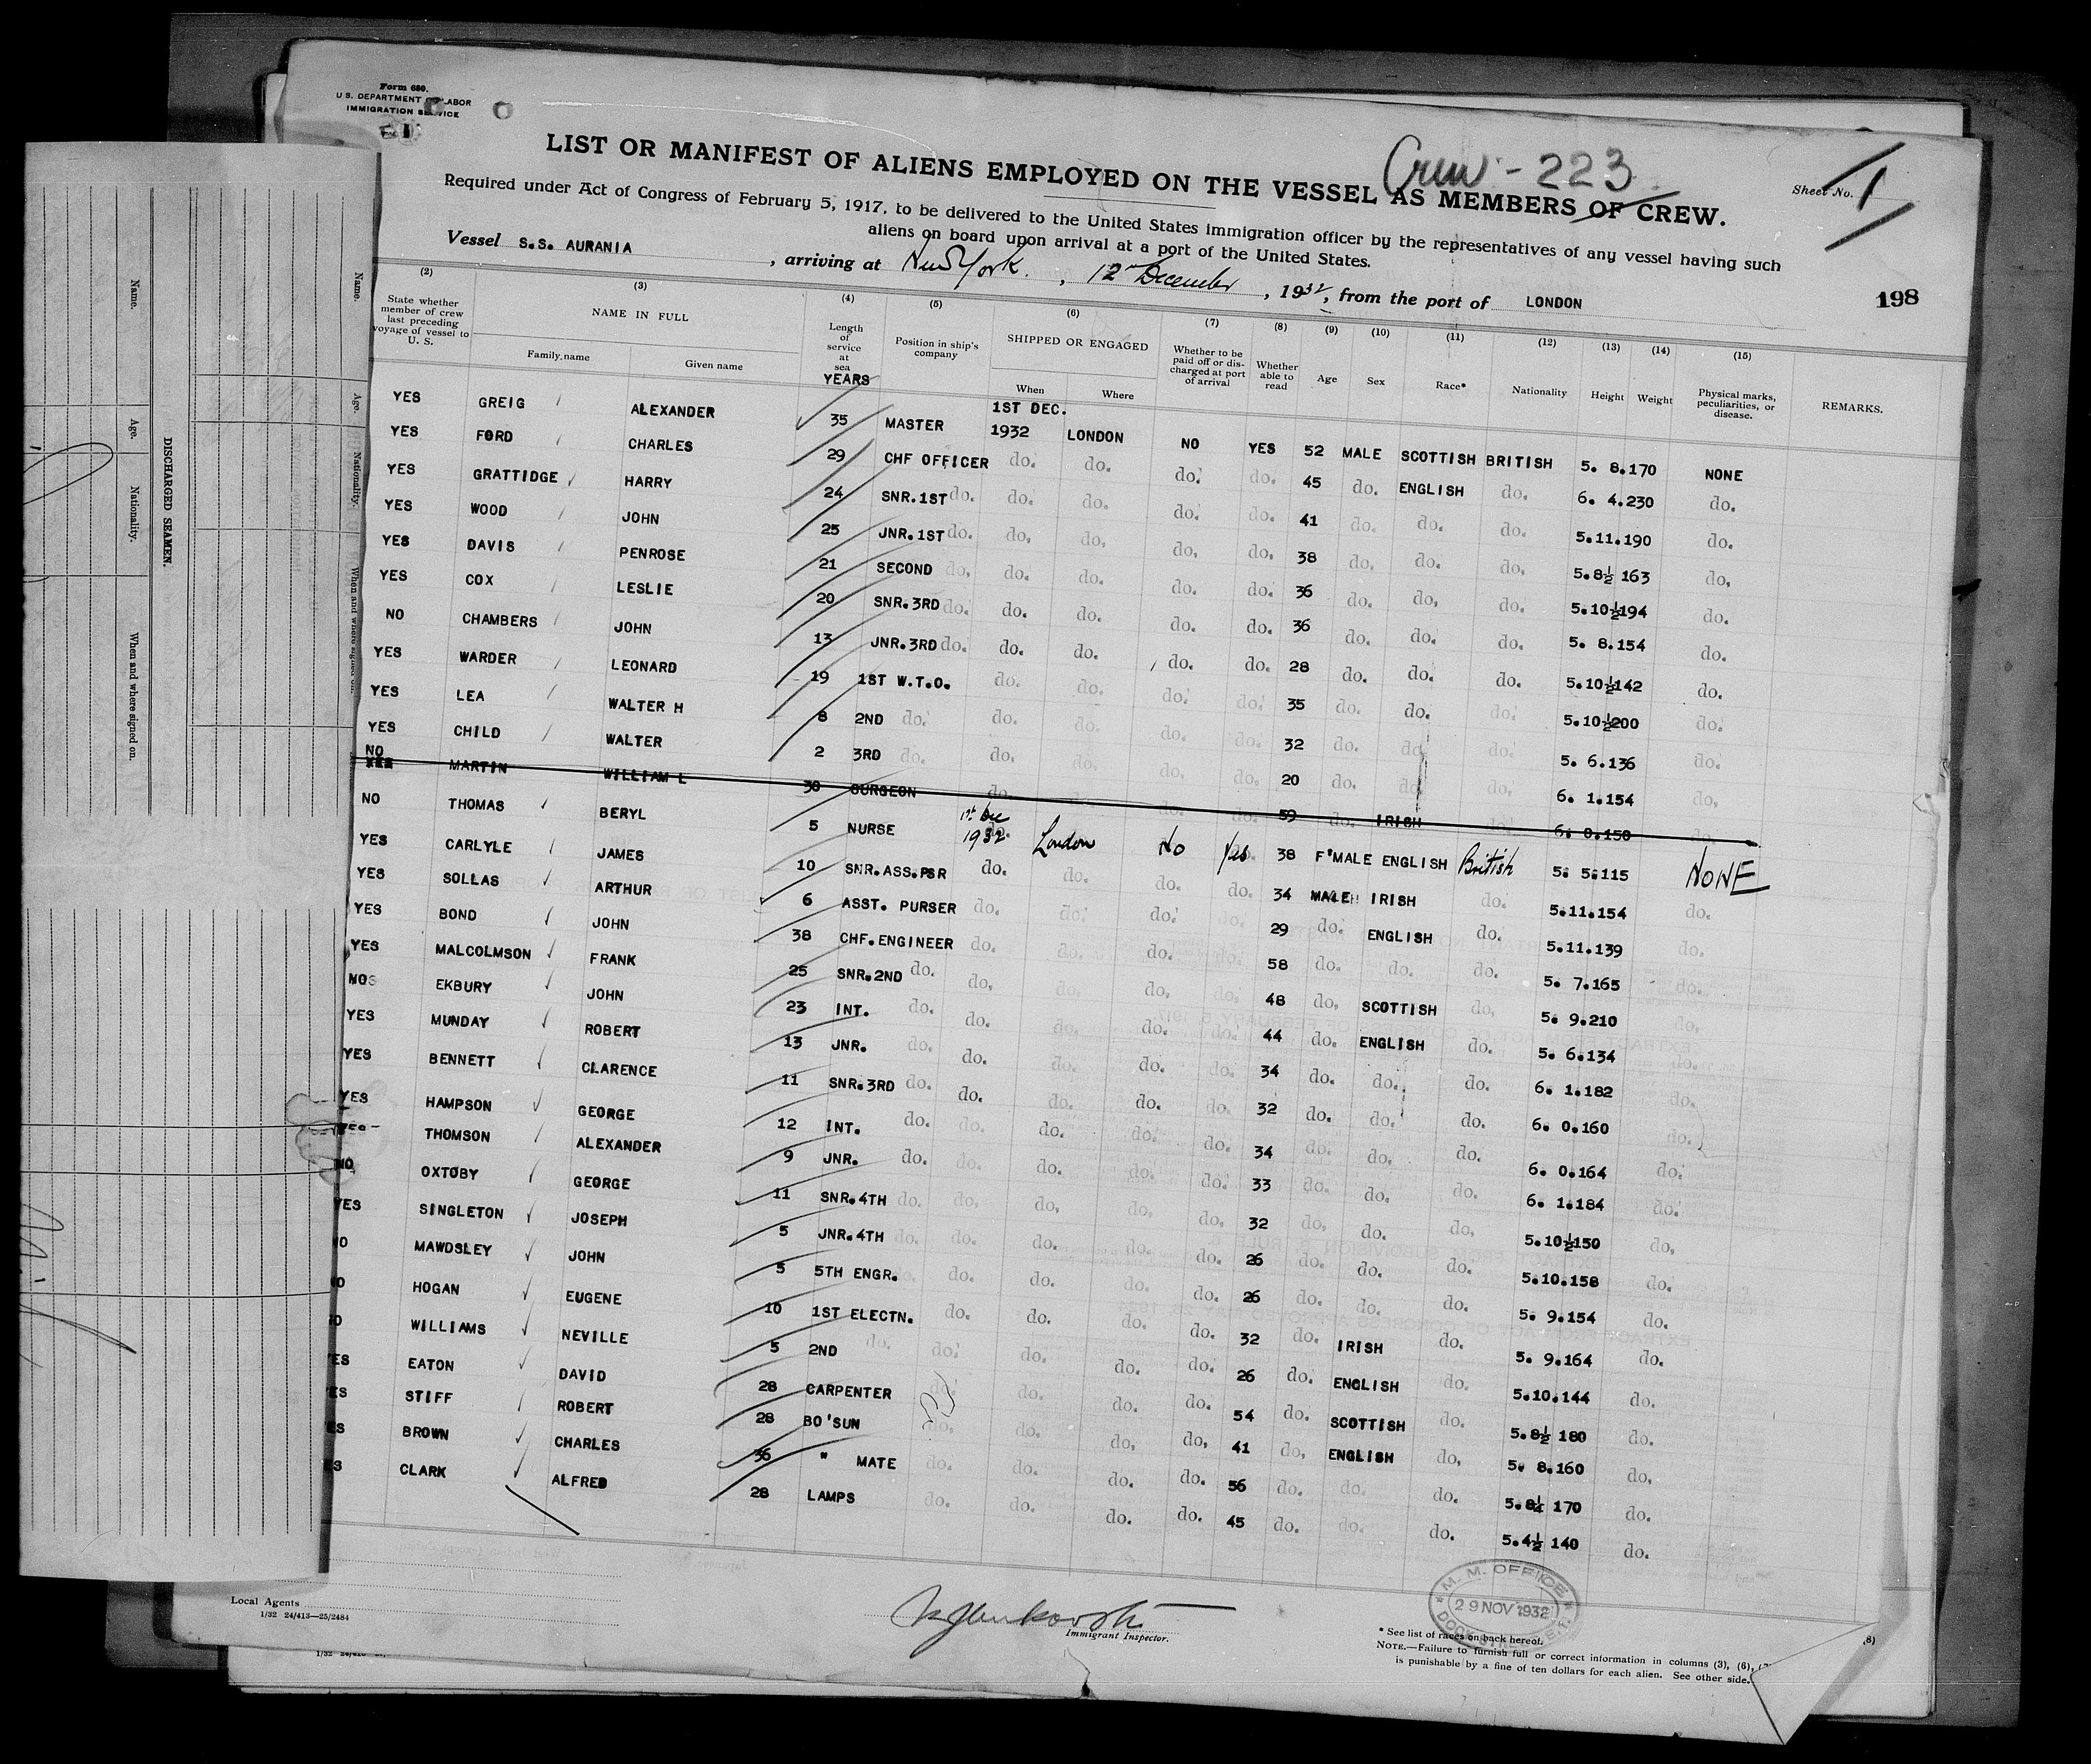 Form 680.
U.S. DEPARTMENT OF LABOR
IMMIGRATION SERVICE
Crew - 223
Sheet No. 1
LIST OR MANIFEST OF ALIENS EMPLOYED ON THE VESSEL AS MEMBERS OF CREW.
Required under Act of Congress of February 5, 1917, to be delivered to the United States immigration officer by the representatives of any vessel having such
aliens on board upon arrival at a port of the United States.
Vessel S.S. AURANIA , arriving at New York. , 12 December , 1932, from the port of LONDON
198
(2) (3) (4) (5) (6) (7) (8) (9) (10) (11) (12) (13) (14) (15)
State whether member of crew last preceding voyage of vessel to U. S. NAME IN FULL Family name Given name Length of service at sea YEARS Position in ship's company SHIPPED OR ENGAGED When Where Whether to be paid off or discharged at port of arrival Whether able to read Age Sex Race* Nationality Height Weight Physical marks, peculiarities, or disease. REMARKS.
YES GREIG ALEXANDER 35 MASTER 1ST DEC. 1932 LONDON NO YES 52 MALE SCOTTISH BRITISH 5. 8.170 NONE
YES FORD CHARLES 29 CHF OFFICER do. do. do. do. 45 do. ENGLISH do. 6. 4.230 do.
YES GRATTIDGE HARRY 24 SNR.1ST do. do. do. do. do. 41 do. do. do. 5.11.190 do.
YES WOOD JOHN 25 JNR.1ST do. do. do. do. do. 38 do. do. do. 5.8½ 163 do.
YES DAVIS PENROSE 21 SECOND do. do. do. do. do. 36 do. do. do. 5.10½194 do.
YES COX LESLIE 20 SNR.3RD do. do. do. do. do. 36 do. do. do. 5. 8.154 do.
NO CHAMBERS JOHN 13 JNR.3RD do. do. do. do. do. 28 do. do. do. 5.10½142 do.
YES WARDER LEONARD 19 1ST W.T.O. do. do. do. do. 35 do. do. do. 5.10½200 do.
YES LEA WALTER H 8 2ND do. do. do. do. do. 32 do. do. do. 5. 6.136 do.
YES CHILD WALTER 2 3RD do. do. do. do. do. 20 do. do. do. 6. 1.154 do.
NO MARTIN WILLIAM L 30 SURGEON do. 59 do. IRISH 6. 0.150 do.
NO THOMAS BERYL 5 NURSE 1st Dec 1932 London No Yes 38 F'MALE ENGLISH British 5. 5.115 NONE
YES CARLYLE JAMES 10 SNR.ASS.PSR do. do. do. do. 34 MALE IRISH do. 5.11.154 do.
YES SOLLAS ARTHUR 6 ASST. PURSER do. do. do. 29 do. ENGLISH do. 5.11.139 do.
YES BOND JOHN 38 CHF.ENGINEER do. do. do. 58 do. do. do. 5. 7.165 do.
YES MALCOLMSON FRANK 25 SNR.2ND do. do. do. do. do. 48 do. SCOTTISH do. 5. 9.210 do.
NO EKBURY JOHN 23 INT. do. do. do. do. do. 44 do. ENGLISH do. 5. 6.134 do.
YES MUNDAY ROBERT 13 JNR. do. do. do. do. do. 34 do. do. do. 6. 1.182 do.
YES BENNETT CLARENCE 11 SNR.3RD do. do. do. do. do. 32 do. do. do. 6. 0.160 do.
YES HAMPSON GEORGE 12 INT. do. do. do. do. do. 34 do. do. do. 6. 0.164 do.
YES THOMSON ALEXANDER 9 JNR. do. do. do. do. do. 33 do. do. do. 6. 1.184 do.
NO OXTOBY GEORGE 11 SNR.4TH do. do. do. do. do. 32 do. do. do. 5.10½150 do.
YES SINGLETON JOSEPH 5 JNR.4TH do. do. do. do. do. 26 do. do. do. 5.10.158 do.
NO MAWDSLEY JOHN 5 5TH ENGR. do. do. do. do. do. 26 do. do. do. 5. 9.154 do.
NO HOGAN EUGENE 10 1ST ELECTN. do. do. do. do. 32 do. IRISH do. 5. 9.164 do.
NO WILLIAMS NEVILLE 5 2ND do. do. do. do. do. 26 do. ENGLISH do. 5.10.144 do.
YES EATON DAVID 28 CARPENTER do. do. do. do. 54 do. SCOTTISH do. 5.8½ 180 do.
YES STIFF ROBERT 28 BO'SUN do. do. do. do. 41 do. ENGLISH do. 5. 8.160 do.
YES BROWN CHARLES 36 " MATE do. do. do. do. 56 do. do. do. 5.8¼ 170 do.
YES CLARK ALFRED 28 LAMPS do. do. do. do. 45 do. do. do. 5.4½ 140 do.
DISCHARGED SEAMEN.
Name. Age. Nationality. When and where signed on.
Name. Age. Nationality. When and where signed on.
Local Agents
1/32 24/413—25/2484
Immigrant Inspector.
M. M. OFFICE
29 NOV 1932
* See list of races on back hereof.
NOTE.—Failure to furnish full or correct information in columns (3), (6),
is punishable by a fine of ten dollars for each alien. See other side.